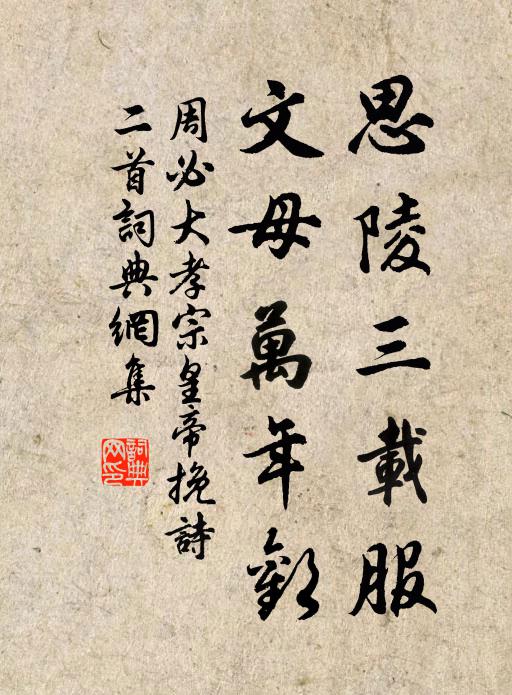 思陵三載服
文母萬年歡
周必大孝宗皇帝挽詩
二首詞典網集
詞典
网印